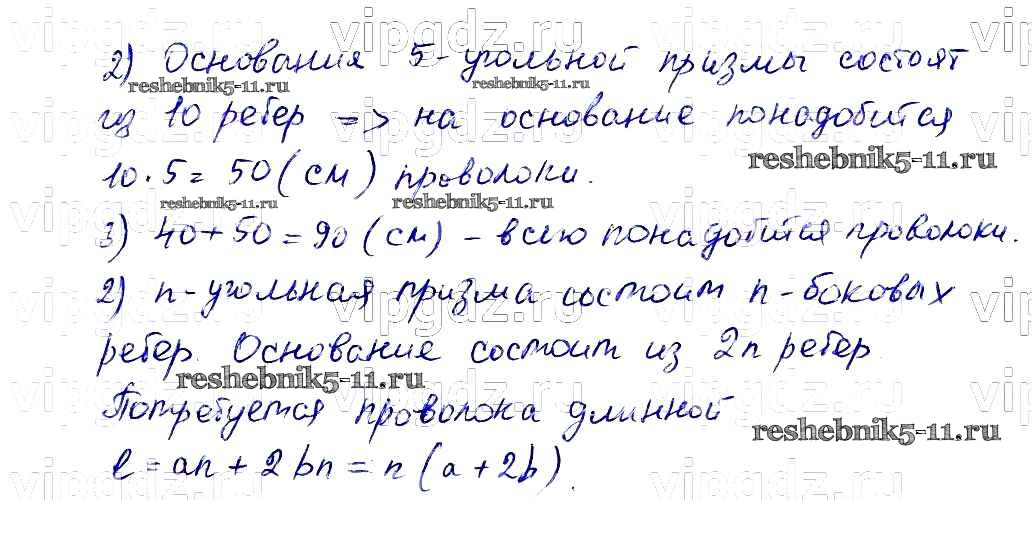 2) Основания 5-угольной призмы состоят
из 10 ребер => на основание понадобится
10·5 = 50 (см) проволоки.
3) 40+50 = 90 (см) – всего понадобится проволоки.
2) n-угольная призма состоит n-боковых
ребер. Основание состоит из 2n ребер.
Потребуется проволока длинной
ℓ = an + 2bn = n(a+2b).
reshebnik5-11.ru
reshebnik5-11.ru
reshebnik5-11.ru
reshebnik5-11.ru
reshebnik5-11.ru
reshebnik5-11.ru
reshebnik5-11.ru
vipgdz.ru